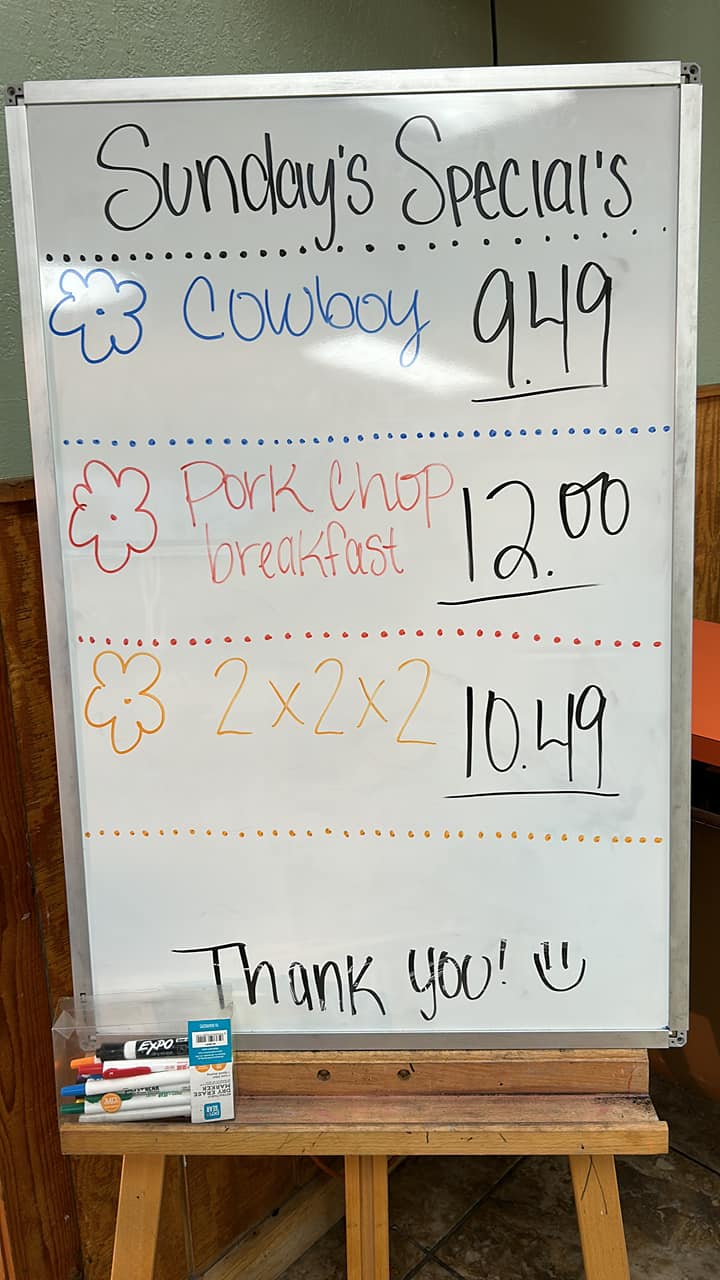 Sunday's Special's
Cowboy 9.49
Pork Chop breakfast 12.00
2x2x2 10.49
Thank you!
EXPO
DRY ERASE
MARKER